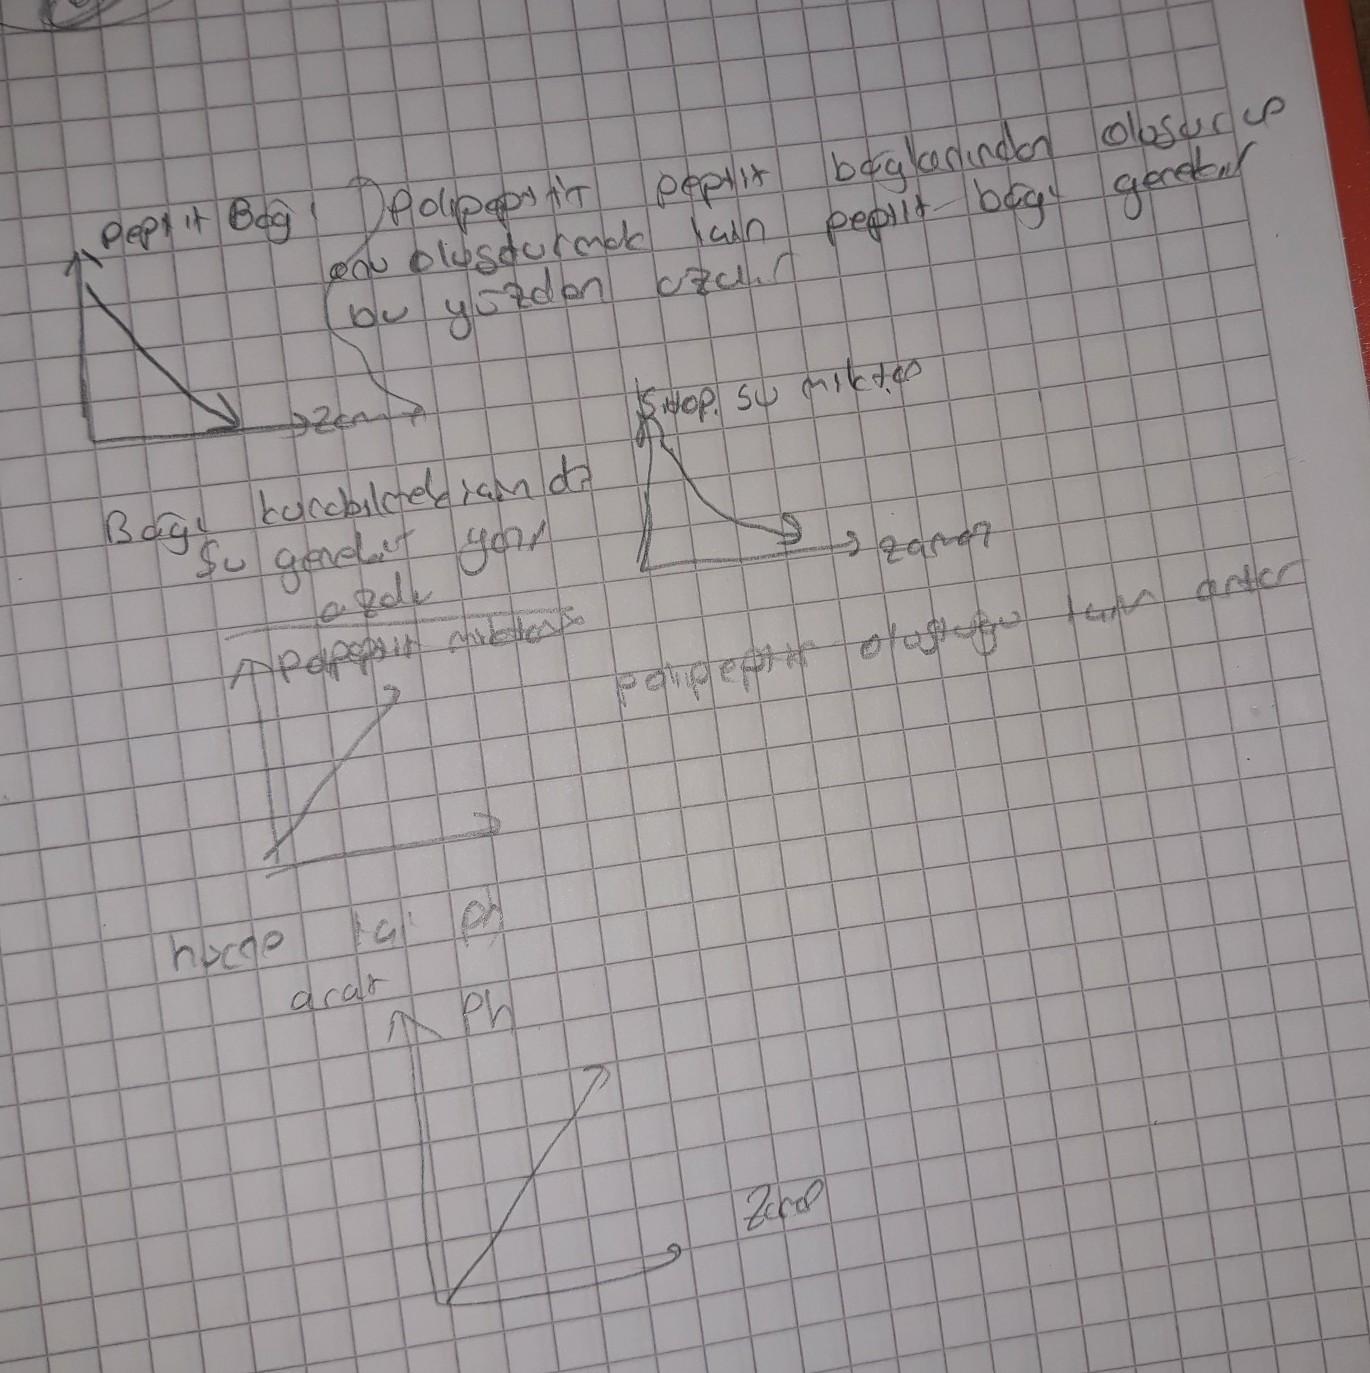 peptit Bağı
Polipeptit peptit bağlarından oluşur
onu oluşdurmak için peptit bağı gerekir
bu yüzden azalır
Zaman
Sitop. su miktarı
zaman
Bağı kurabilmek için de
su gerekir yani
azalır
Polipeptit miktarı
polipeptit oluştuğu için artar
hücre içi Ph
artar
Ph
Zaman